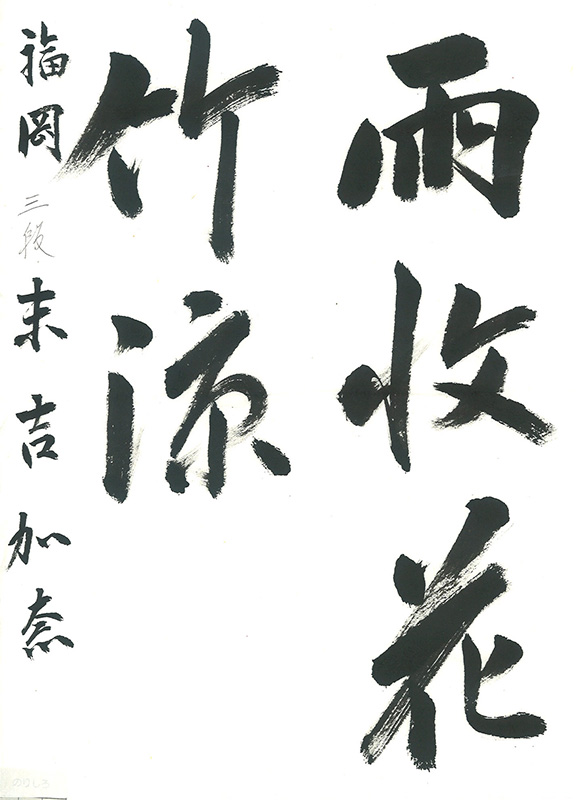 雨收花
竹涼
福岡 三段 末吉加奈